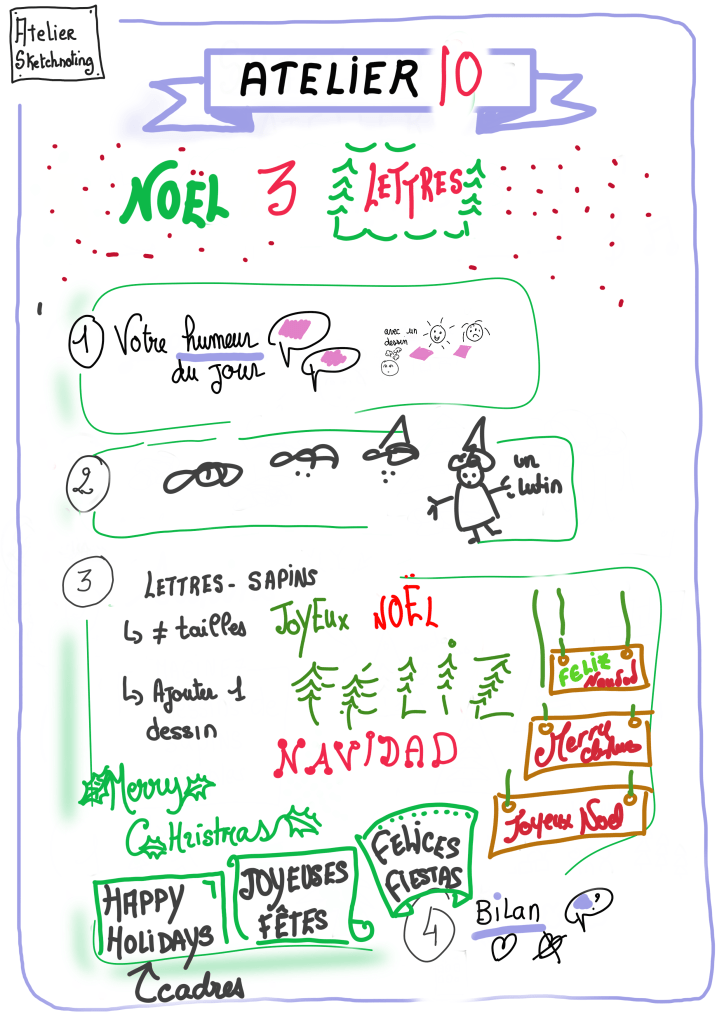 Atelier
Sketchnoting
ATELIER 10
NOËL 3 LETTRES
1 Votre humeur
du jour
avec un
dessin
2
un
lutin
3 LETTRES-SAPINS
↳ ≠ tailles JOYEUX NOËL
↳ Ajouter 1
dessin
FELIZ
NAVIDAD
FELIZ
Navidad
Merry
Joyeux Noel
Merry
CHristmas
HAPPY
HOLIDAYS
JOYEUSES
FÊTES
FELICES
FIESTAS
4 Bilan
cadres